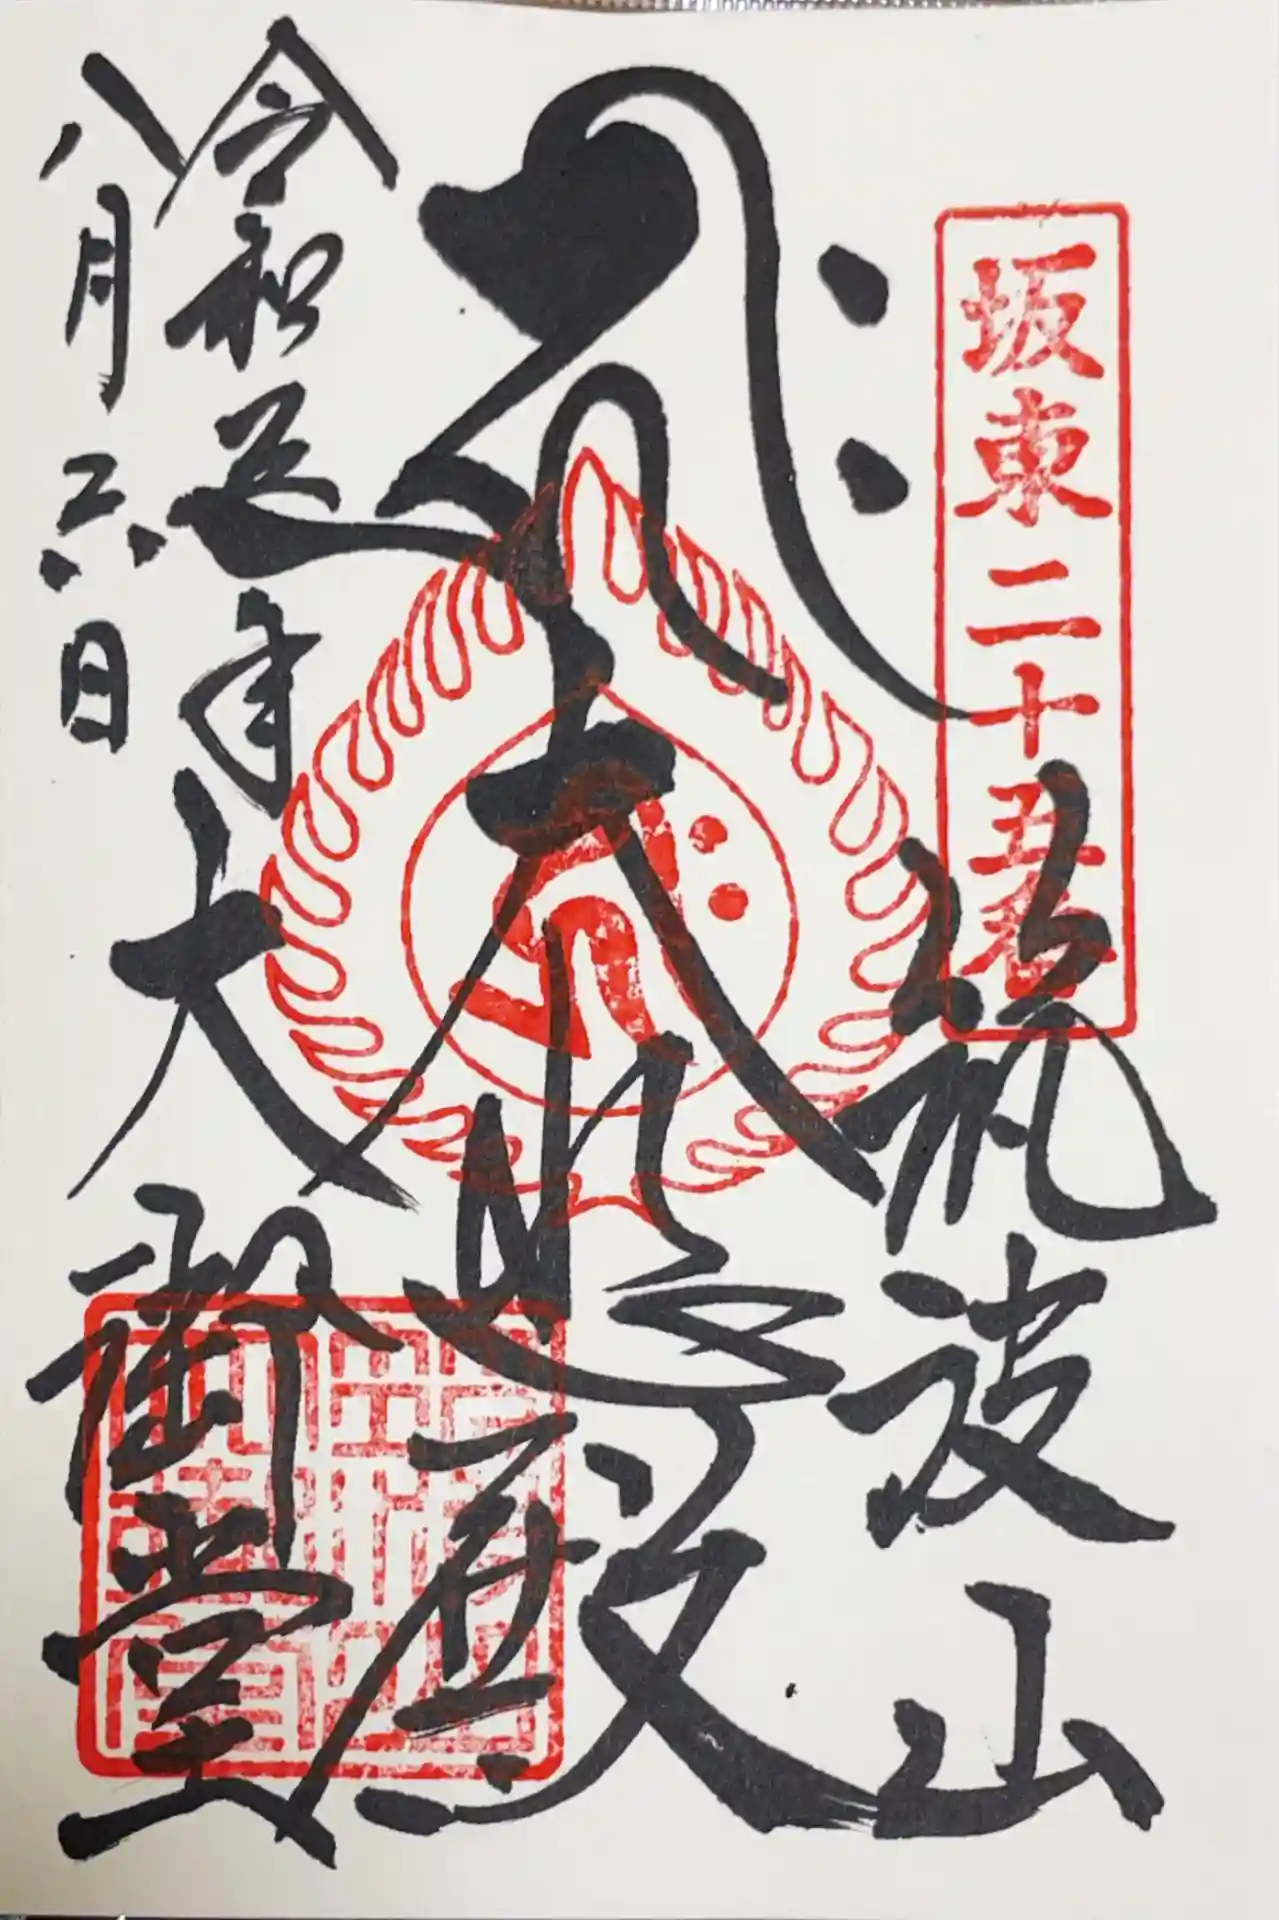 坂東二十五番
筑波山
大悲殿
大御堂
令和年
八月六日